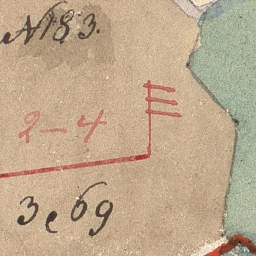 № 83.
2-4
3 e 69